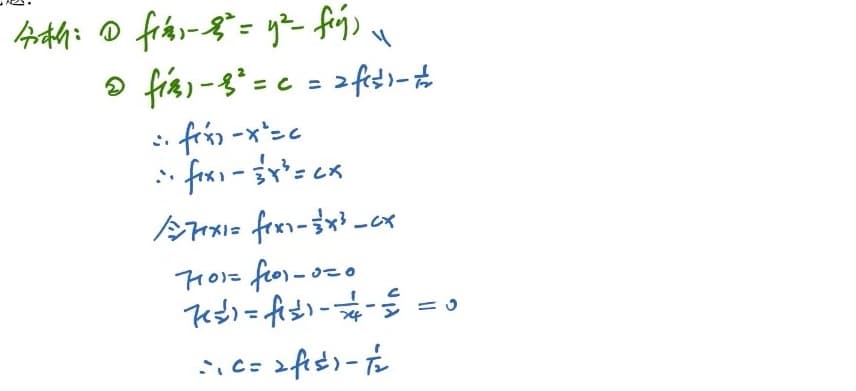 分析: ① f'(ξ)-ξ²=η²-f'(η)
② f'(ξ)-ξ²=c=2f(1/2)-1/12
∴ f'(x)-x²=c
∴ f(x)-1/3x³=cx
令F(x)=f(x)-1/3x³-cx
F(0)=f(0)-0=0
F(1/2)=f(1/2)-1/24-c/2=0
∴ c=2f(1/2)-1/12